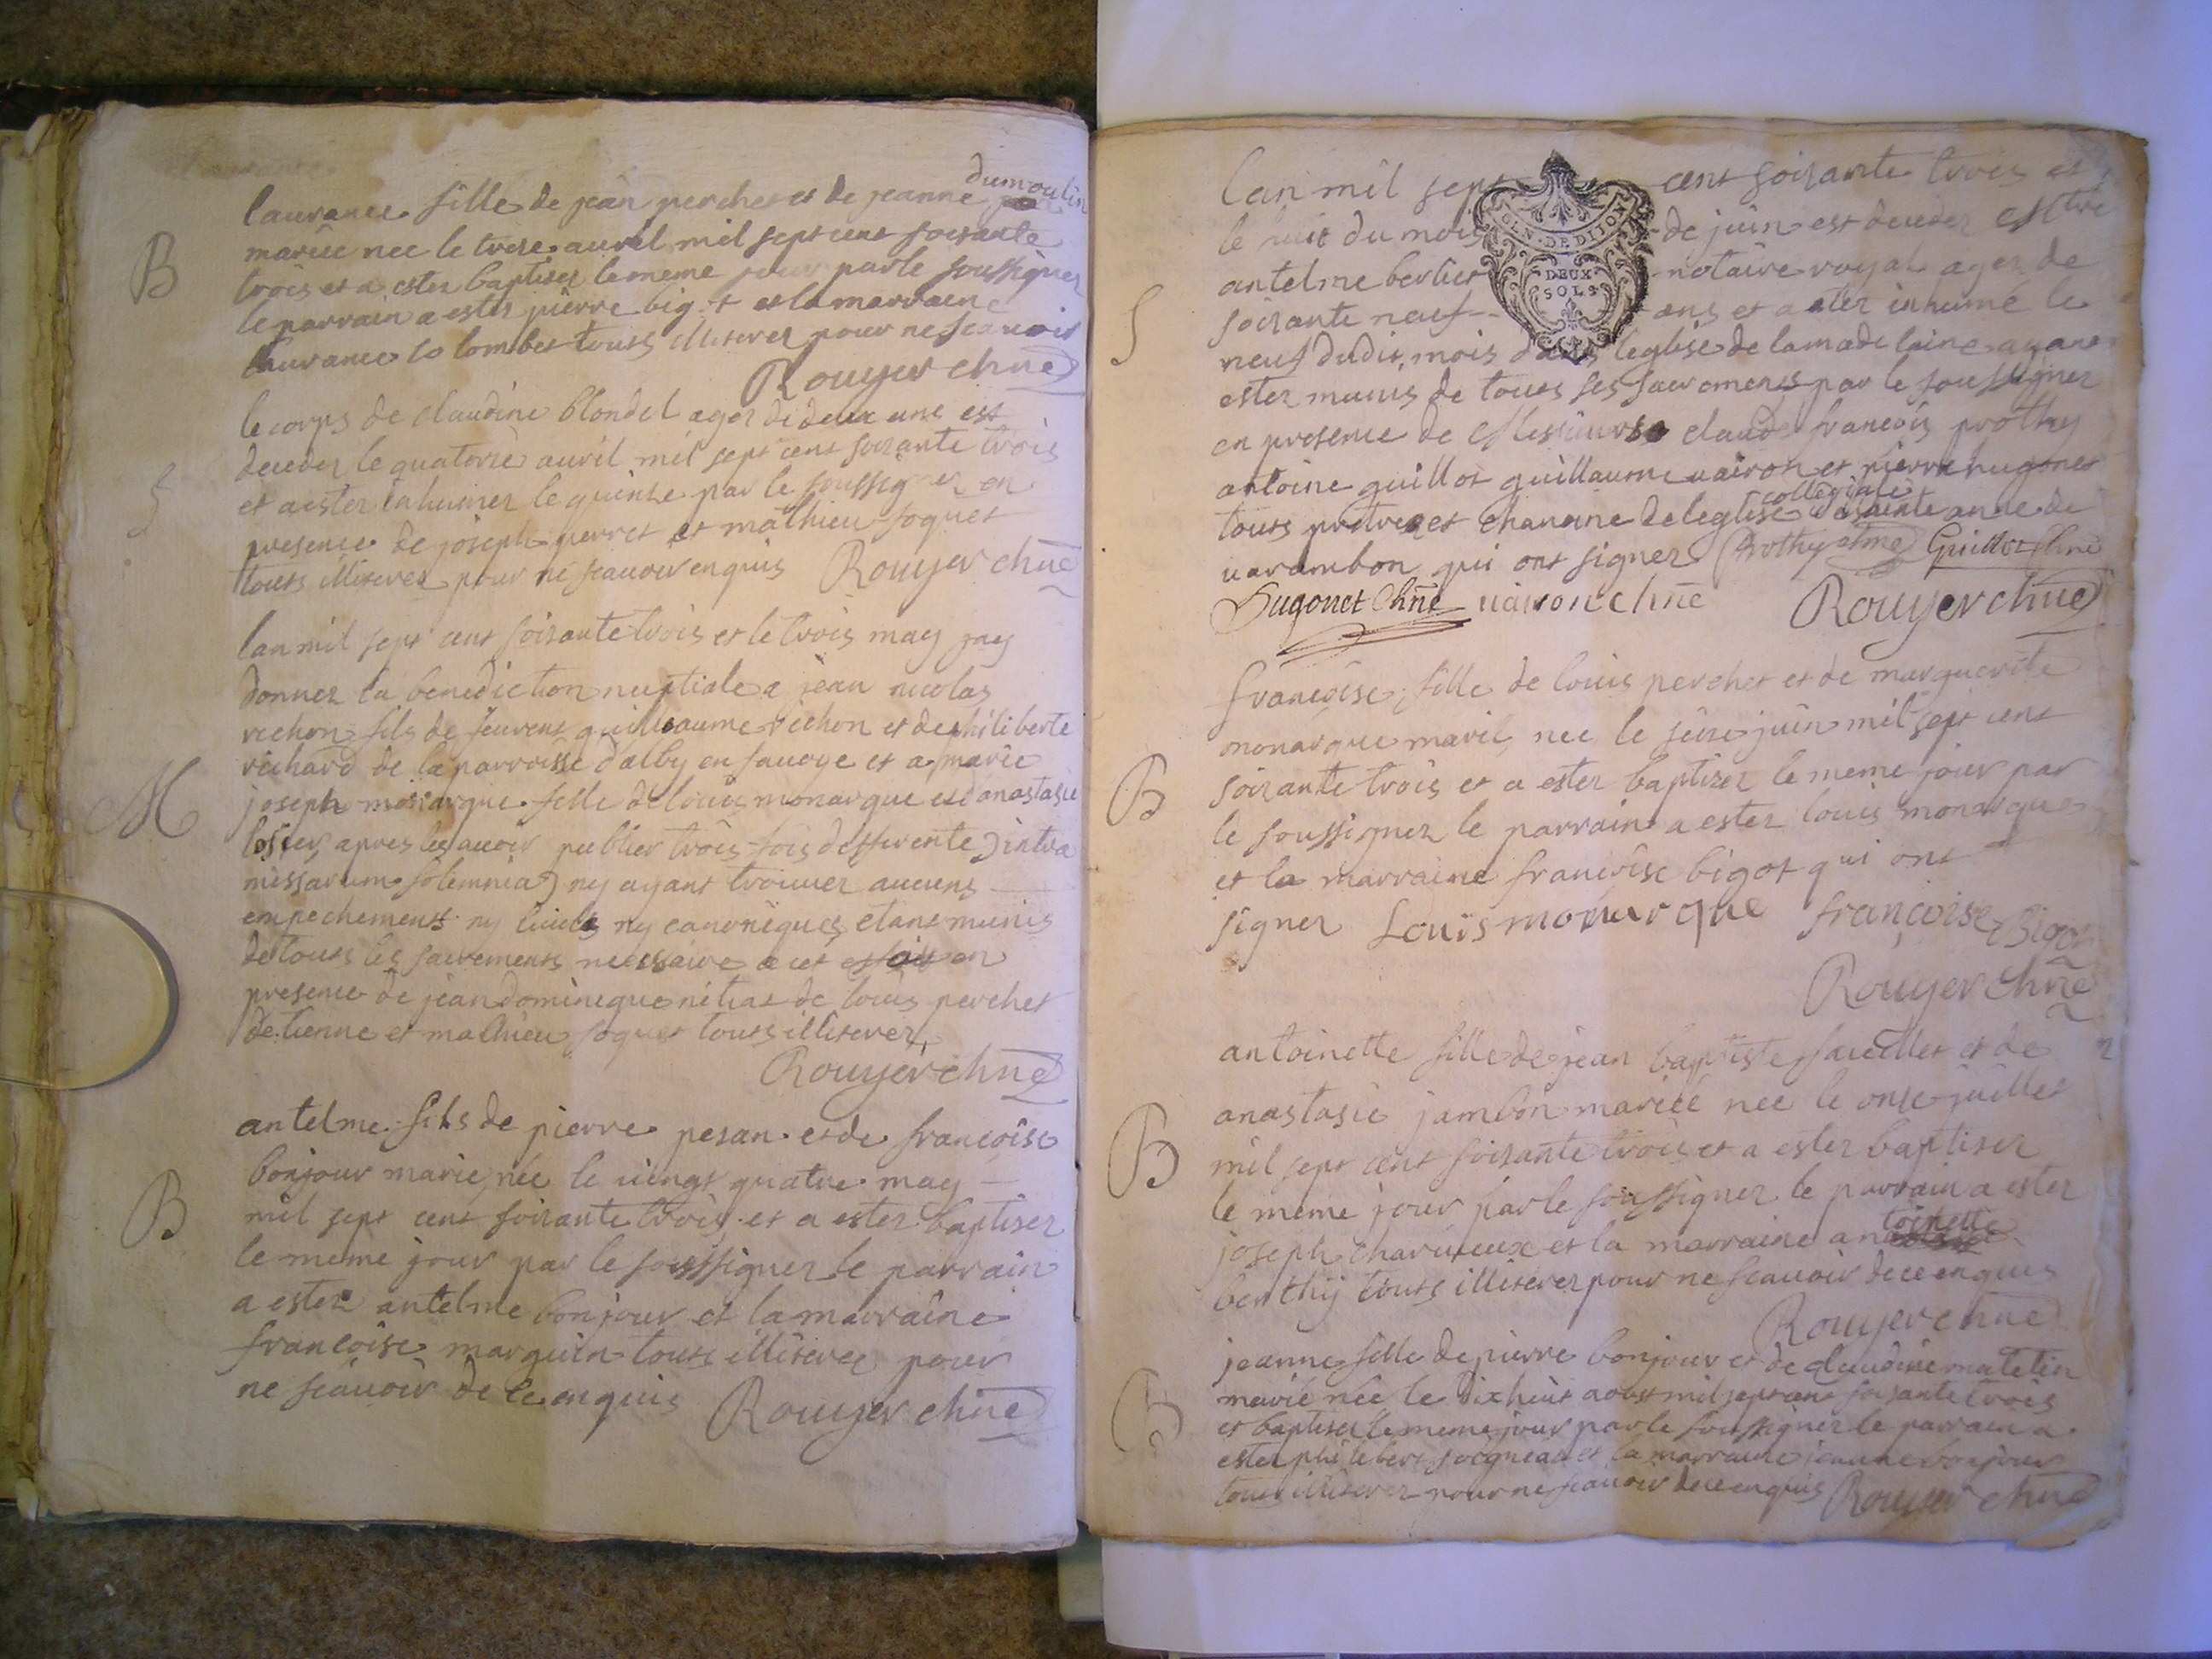 dumoulin
laurance fille de jean perchet et de jeanne
B
mariée nee le treze avril mil sept cent soixante
trois et a ester baptiser le meme jour par le soussigner
le parrain a ester pierre bigot et la marraine
laurance colombet touts illiterez pour ne scauoir
Rouyer chne
le corps de claudine blondel ager de deux ans est
deceder le quatorze auril mil sept cent soixante trois
S
et a ester inhumer le quinze par le soussigner en
presence de joseph perret et mathieu foquet
touts illiterez pour ne scauoir enquis Rouyer chne
lan mil sept cent soixante trois et le trois may jay
donner la benediction nuptiale a jean nicolas
richon fils de feurent guillaume richon et de philiberte
richard de la parroisse dalby en sauoye et a marie
M
joseph monarque fille de louis monarque et danastasie
losier apres les auoir publier trois fois differente intra
missarum solemnia ny ayant trouuer aucuns
empechements ny ciuils ny canoniques etant munis
de touts les sacrements necessaire a cet en
presence de jean dominique nitras de louis perchet
detienne et mathieu foquet touts illiterez
Rouyer chne
antelme fils de pierre pesan et de francoise
bonjour marie née le uingt quatre may
B
mil sept cent soixante trois et a ester baptiser
le meme jour par le soussigner le parrain
a ester antelme bonjour et la marraine
francoise marguin touts illiterez pour
ne scauoir de ce enquis Rouyer chne
GEN. DE DIJON
DEUX
SOLS
lan mil sept cent soixante trois et
le huit du mois de juin est deceder Mtre
antelme berlier notaire royal ager de
S
soixante neuf ans et a ester inhumé le
neuf dudit mois dans leglise de la madelaine ayant
ester munis de touts ses sacrements par le soussigner
en presence de Messieurs claude francois prothy
antoine guillot guillaume uairon et pierre hugonet
collegiale
touts pretres et chanoine de leglise de sainte anne de
uarambon qui ont signer Prothy chne Guillot chne
Hugonet Chne uairon chne Rouyer chne
francoise fille de louis perchet et de marguerite
monarque marié nee le seize juin mil sept cent
B
soixante trois et a ester baptiser le meme jour par
le soussigner le parrain a ester louis monarque
et la marraine francoise bigot qui ont
signer Louis monarque françoise Bigot
Rouyer chne
antoinette fille de jean baptiste fauellet et de
anastasie jambon mariée nee le onze juillet
B
mil sept cent soixante trois et a ester baptiser
le meme jour par le soussigner le parrain a ester
toinette
joseph charueux et la marraine an
berthy touts illiterez pour ne scauoir de ce enquis
Rouyer chne
jeanne fille de pierre bonjour et de claudine matetin
marié née le dix huit aoust mil sept cent soixante trois
B
et baptiser le meme jour par le soussigner le parrain a
ester philibert joigneau et la marraine jeanne bonjour
touts illiterez pour ne scauoir de ce enquis Rouyer chne